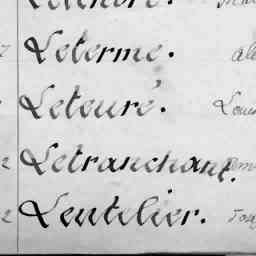 Leterme. ale
Leteuré. Loui
2 Letranchant.
2 Leutelier.